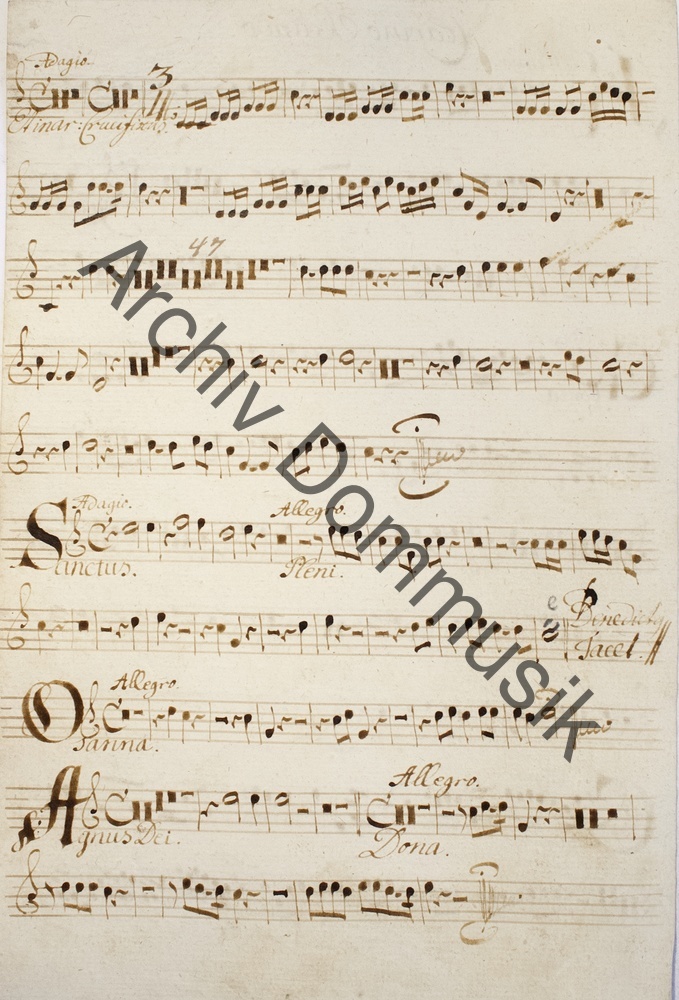 Adagio.
3
Et inar: Crucifixus.
47
Adagio.
Allegro.
Sanctus.
Pleni.
e
Benedictus
Tacet.
Allegro.
Osanna.
Allegro.
Agnus Dei.
Dona.
Archiv Dommusik